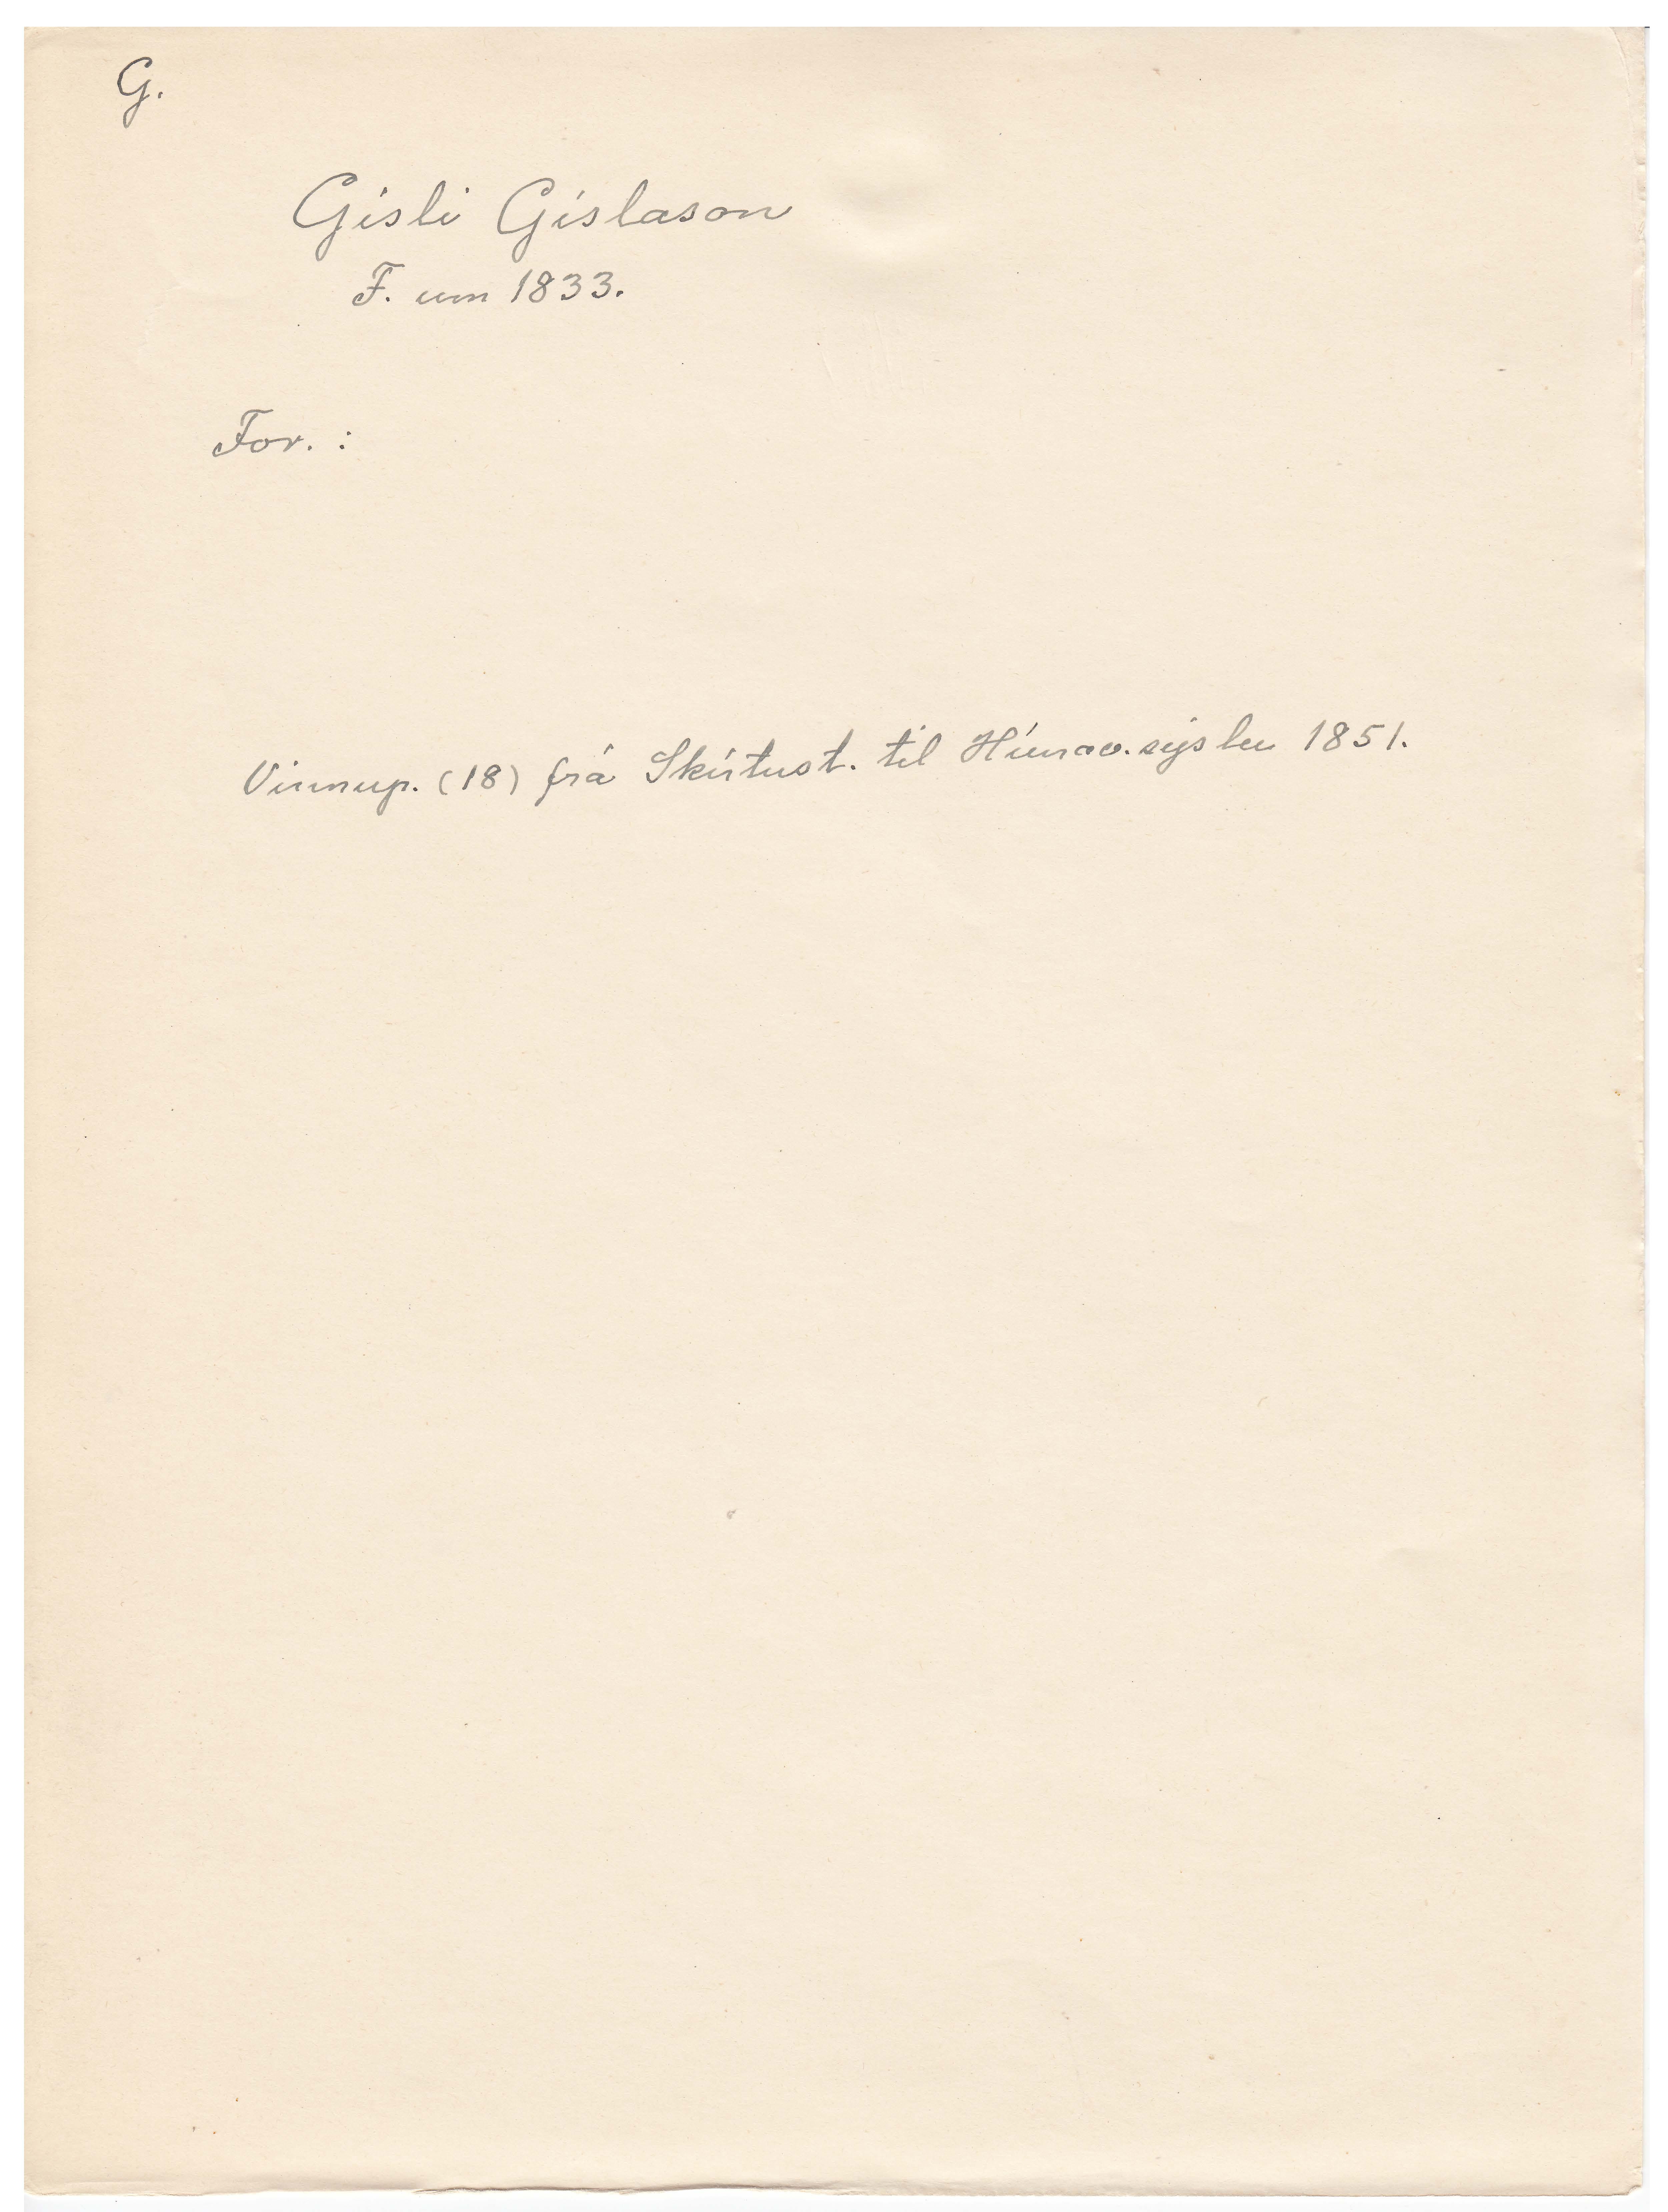 G.
Gísli Gíslason
F. um 1833.
For. :
Vinnup. (18) frá Skútust. til Húnav.sýslu 1851.